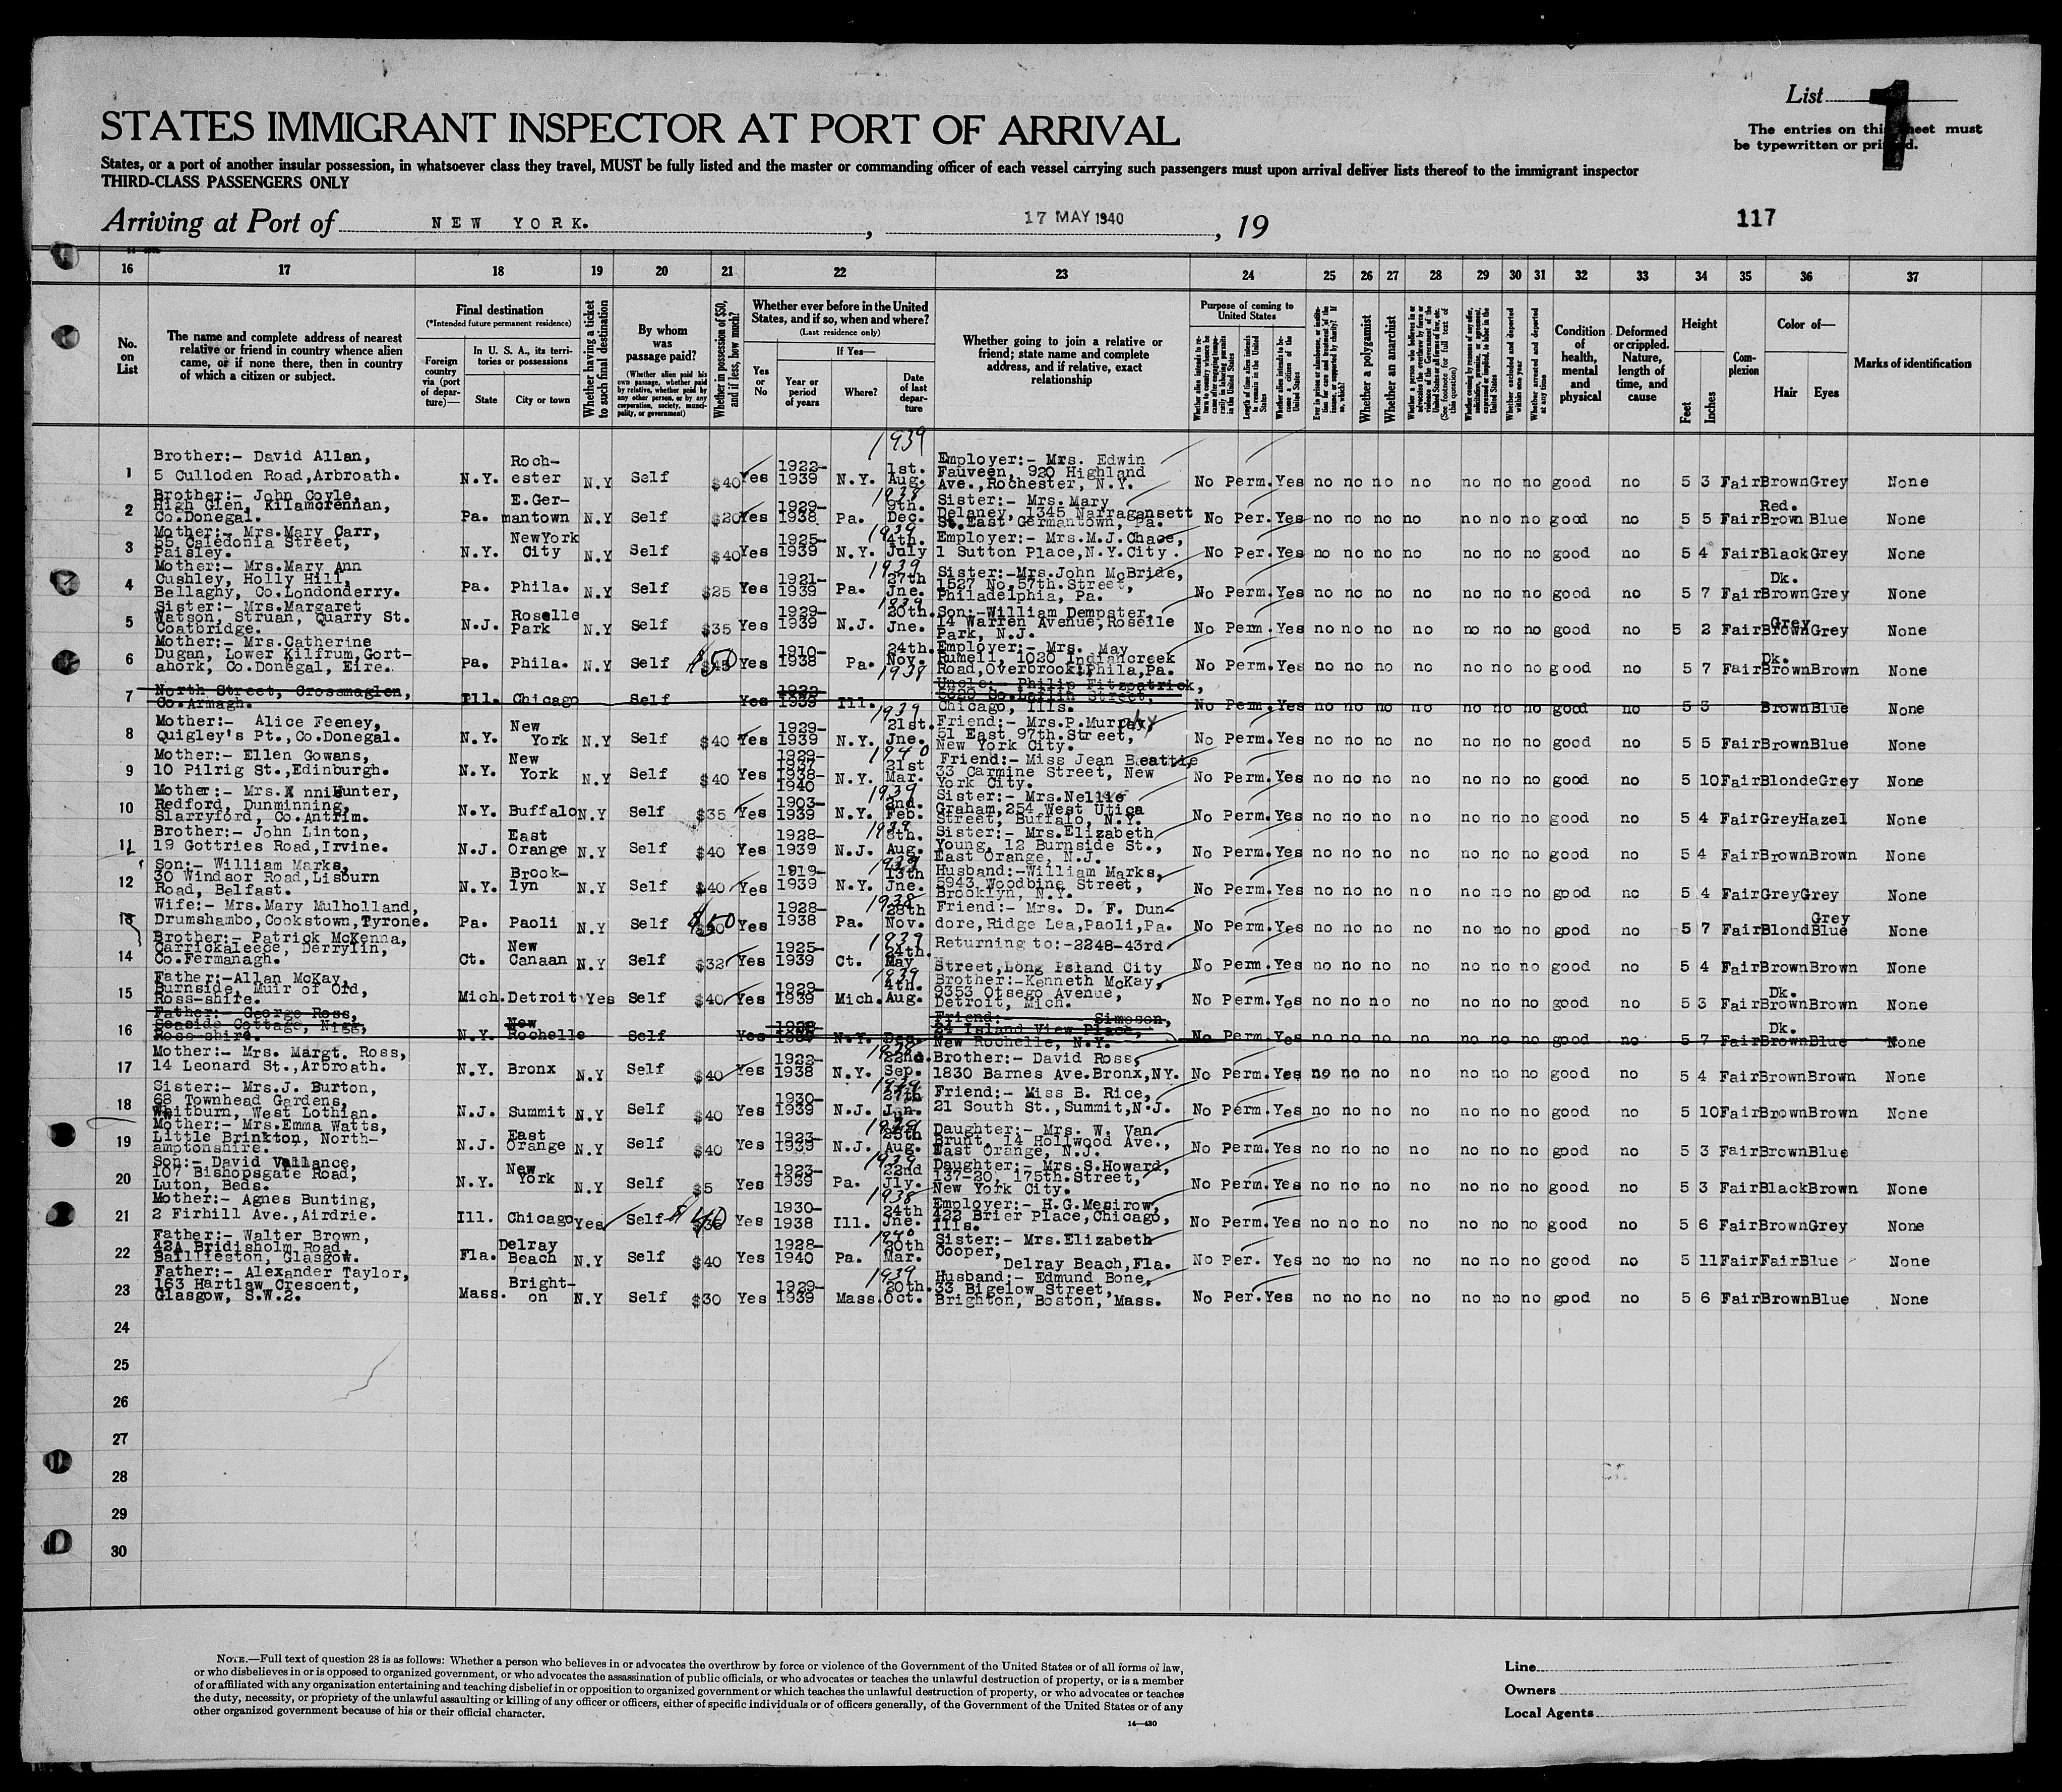 List 1
The entries on this sheet must
be typewritten or printed.
STATES IMMIGRANT INSPECTOR AT PORT OF ARRIVAL
States, or a port of another insular possession, in whatsoever class they travel, MUST be fully listed and the master or commanding officer of each vessel carrying such passengers must upon arrival deliver lists thereof to the immigrant inspector
THIRD-CLASS PASSENGERS ONLY
Arriving at Port of NEW YORK. , 17 MAY 1940 , 19
117
16 17 18 19 20 21 22 23 24 25 26 27 28 29 30 31 32 33 34 35 36 37
No. on List
The name and complete address of nearest relative or friend in country whence alien came, or if none there, then in country of which a citizen or subject.
Final destination
(*Intended future permanent residence)
Foreign country via (port of departure)—
In U. S. A., its territories or possessions
State
City or town
Whether having a ticket to such final destination
By whom was passage paid?
(Whether alien paid his own passage, whether paid by relative, whether paid by any other person, or by any corporation, society, municipality, or government)
Whether in possession of $50, and if less, how much?
Whether ever before in the United States, and if so, when and where?
(Last residence only)
If Yes—
Yes or No
Year or period of years
Where?
Date of last departure
Whether going to join a relative or friend; state name and complete address, and if relative, exact relationship
Purpose of coming to United States
Length of time alien intends to remain in the United States
Whether alien intends to become a citizen of the United States
Whether a polygamist
Whether an anarchist
Whether excluded and deported within one year
Whether arrested and deported at any time
Condition of health, mental and physical
Deformed or crippled. Nature, length of time, and cause
Height
Feet
Inches
Complexion
Color of—
Hair
Eyes
Marks of identification
1 Brother:- David Allan, 5 Culloden Road,Arbroath. N.Y. Rochester N.Y Self $40 Yes 1922-1939 N.Y. 1st. Aug. 1939 Employer:- Mrs. Edwin Fauveen, 920 Highland Ave.,Rochester, N.Y. No Perm. Yes no no no no no no no good no 5 3 Fair Brown Grey None
2 Brother:- John Coyle, High Glen, Kilamcrennan, Co.Donegal. Pa. E.Germantown N.Y Self $20 Yes 1929-1938 Pa. 9th. Dec. 1938 Sister:- Mrs. Mary Delaney, 1345 Narragansett St.East Germantown, Pa. No Per. Yes no no no no no no no good no 5 5 Fair Red. Brown Blue None
3 Mother:- Mrs.Mary Carr, 55 Caledonia Street, Paisley. N.Y. NewYork City N.Y Self $40 Yes 1925-1939 N.Y. 4th. July 1939 Employer:- Mrs.M.J.Chace, 1 Sutton Place,N.Y.City. No Per. Yes no no no no no no no good no 5 4 Fair Black Grey None
4 Mother:- Mrs.Mary Ann Cushley, Holly Hill, Bellaghy, Co.Londonderry. Pa. Phila. N.Y Self $25 Yes 1921-1939 Pa. 27th Jne. 1939 Sister:-Mrs.John McBride, 1527 No.57th.Street, Philadelphia, Pa. No Perm. Yes no no no no no no no good no 5 7 Fair Dk. Brown Grey None
5 Sister:- Mrs.Margaret Watson, Struan, Quarry St. Coatbridge. N.J. Roselle Park N.Y Self $35 Yes 1929-1939 N.J. 20th. Jne. 1939 Son:-William Dempster, 14 Warren Avenue,Roselle Park, N.J. No Perm. Yes no no no no no no no good no 5 2 Fair Grey Brown Grey None
6 Mother:- Mrs.Catherine Dugan, Lower Kilfrum,Gortahork, Co.Donegal, Eire. Pa. Phila. N.Y Self $50 Yes 1910-1938 Pa. 24th. Nov. 1938 Employer:- Mrs. May Rumell, 1020 Indiancreek Road,Overbrook,Phila,Pa. No Perm. Yes no no no no no no no good no 5 7 Fair Dk. Brown Brown None
7 North Street, Crossmaglen, Co.Armagh. Ill. Chicago Self Yes 1939 Ill. Uncle:- Philip Fitzpatrick, So.Laflin Street, Chicago, Ills. No Perm. Yes no no no no no no no good no 5 3 Brown Blue None
8 Mother:- Alice Feeney, Quigley's Pt.,Co.Donegal. N.Y. New York N.Y Self $40 Yes 1929-1939 N.Y. 21st. Jne. 1939 Friend:- Mrs.P.Murphy, 51 East 97th.Street, New York City. No Perm. Yes no no no no no no no good no 5 5 Fair Brown Blue None
9 Mother:- Ellen Gowans, 10 Pilrig St.,Edinburgh. N.Y. New York N.Y Self $40 Yes 1929-1937 1938-1940 N.Y. 21st Mar. 1940 Friend:- Miss Jean Beattie, 33 Carmine Street, New York City. No Perm. Yes no no no no no no no good no 5 10 Fair Blonde Grey None
10 Mother:- Mrs. Hunter, Redford, Dunminning, Slarryford, Co.Antrim. N.Y. Buffalo N.Y Self $35 Yes 1903-1939 N.Y. 2nd. Feb. 1939 Sister:- Mrs.Nellie Graham,254 West Utica Street, Buffalo, N.Y. No Perm. Yes no no no no no no no good no 5 4 Fair Grey Hazel None
11 Brother:- John Linton, 19 Gottries Road,Irvine. N.J. East Orange N.Y Self $40 Yes 1928-1939 N.J. 8th. Aug. 1939 Sister:- Mrs.Elizabeth Young, 12 Burnside St., East Orange, N.J. No Perm. Yes no no no no no no no good no 5 4 Fair Brown Brown None
12 Son:- William Marks, 30 Windsor Road,Lisburn Road, Belfast. N.Y. Brooklyn N.Y Self $40 Yes 1919-1939 N.Y. 13th Jne. 1939 Husband:-William Marks, 5943 Woodbine Street, Brooklyn, N.Y. No Perm. Yes no no no no no no no good no 5 4 Fair Grey Grey None
13 Wife:- Mrs.Mary Mulholland, Drumshambo,Cookstown,Tyrone. Pa. Paoli N.Y Self $50 Yes 1928-1938 Pa. 28th Nov. 1938 Friend:- Mrs. D. F. Dundore,Ridge Lea,Paoli,Pa. No Perm. Yes no no no no no no no good no 5 7 Fair Blond Grey Blue None
14 Brother:- Patrick McKenna, Carrickaleece, Derrylin, Co.Fermanagh. Ct. New Canaan N.Y Self $32 Yes 1925-1939 Ct. 24th. May 1939 Returning to:-2248-43rd Street,Long Island City No Perm. Yes no no no no no no no good no 5 4 Fair Brown Brown None
15 Father:-Allan McKay, Burnside, Muir of Ord, Ross-shire. Mich. Detroit Yes Self $40 Yes 1929-1939 Mich. 4th. Aug. 1939 Brother:-Kenneth McKay, 9353 Otsego Avenue, Detroit, Mich. No Perm. Yes no no no no no no no good no 5 3 Fair Dk. Brown Brown None
16 Father:- George Ross, Seaside Cottage, Nigg, Ross-shire. N.Y. New Rochelle Self Yes N.Y. Dec. Friend:- Simpson, Island View Place, New Rochelle, N.Y. No Perm. Yes no no no no no no no good no 5 7 Fair Dk. Brown Blue None
17 Mother:- Mrs. Margt. Ross, 14 Leonard St.,Arbroath. N.Y. Bronx N.Y Self $40 Yes 1922-1938 N.Y. 22nd. Sep. 1938 Brother:- David Ross, 1830 Barnes Ave.Bronx,NY. No Perm. Yes no no no no no no no good no 5 4 Fair Brown Brown None
18 Sister:- Mrs.J. Burton, 68 Townhead Gardens, Whitburn, West Lothian. N.J. Summit N.Y Self $40 Yes 1930-1939 N.J. 27th Jan. 1939 Friend:- Miss B. Rice, 21 South St.,Summit,N.J. No Perm. Yes no no no no no no no good no 5 10 Fair Brown Brown None
19 Mother:- Mrs.Emma Watts, Little Brinkton, Northamptonshire. N.J. East Orange N.Y Self $40 Yes 1923-1939 N.J. 25th Aug. 1939 Daughter:- Mrs. W. Van Brunt, 14 Hollwood Ave., East Orange, N.J. No Perm. Yes no no no no no no no good no 5 3 Fair Brown Blue
20 Son:- David Vallance, 107 Bishopsgate Road, Luton, Beds. N.Y. New York N.Y Self $5 Yes 1923-1939 Pa. 22nd Jly. 1939 Daughter:- Mrs.S.Howard, 137-20, 175th.Street, New York City. No Perm. Yes no no no no no no no good no 5 3 Fair Black Brown None
21 Mother:- Agnes Bunting, 2 Firhill Ave.,Airdrie. Ill. Chicago Yes Self $40 Yes 1930-1938 Ill. 24th Jne. 1938 Employer:- H.G.Mesirow, 422 Brier Place,Chicago, Ills. No Perm. Yes no no no no no no no good no 5 6 Fair Brown Grey None
22 Father:- Walter Brown, 42A Bridisholm Road, Baillieston, Glasgow. Fla. Delray Beach N.Y Self $40 Yes 1928-1940 Pa. 20th Mar. 1940 Sister:- Mrs.Elizabeth Cooper, Delray Beach,Fla. No Per. Yes no no no no no no no good no 5 11 Fair Fair Blue None
23 Father:- Alexander Taylor, 163 Hartlaw Crescent, Glasgow, S.W.2. Mass. Brighton N.Y Self $30 Yes 1929-1939 Mass. 20th. Oct. 1939 Husband:- Edmund Bone, 33 Bigelow Street, Brighton, Boston, Mass. No Per. Yes no no no no no no no good no 5 6 Fair Brown Blue None
24
25
26
27
28
29
30
NOTE.—Full text of question 28 is as follows: Whether a person who believes in or advocates the overthrow by force or violence of the Government of the United States or of all forms of law,
or who disbelieves in or is opposed to organized government, or who advocates the assassination of public officials, or who advocates or teaches the unlawful destruction of property, or is a member
of or affiliated with any organization entertaining and teaching disbelief in or opposition to organized government or which teaches the unlawful destruction of property, or who advocates or teaches
the duty, necessity, or propriety of the unlawful assaulting or killing of any officer or officers, either of specific individuals or of officers generally, of the Government of the United States or of any
other organized government because of his or their official character.
14—430
Line
Owners
Local Agents